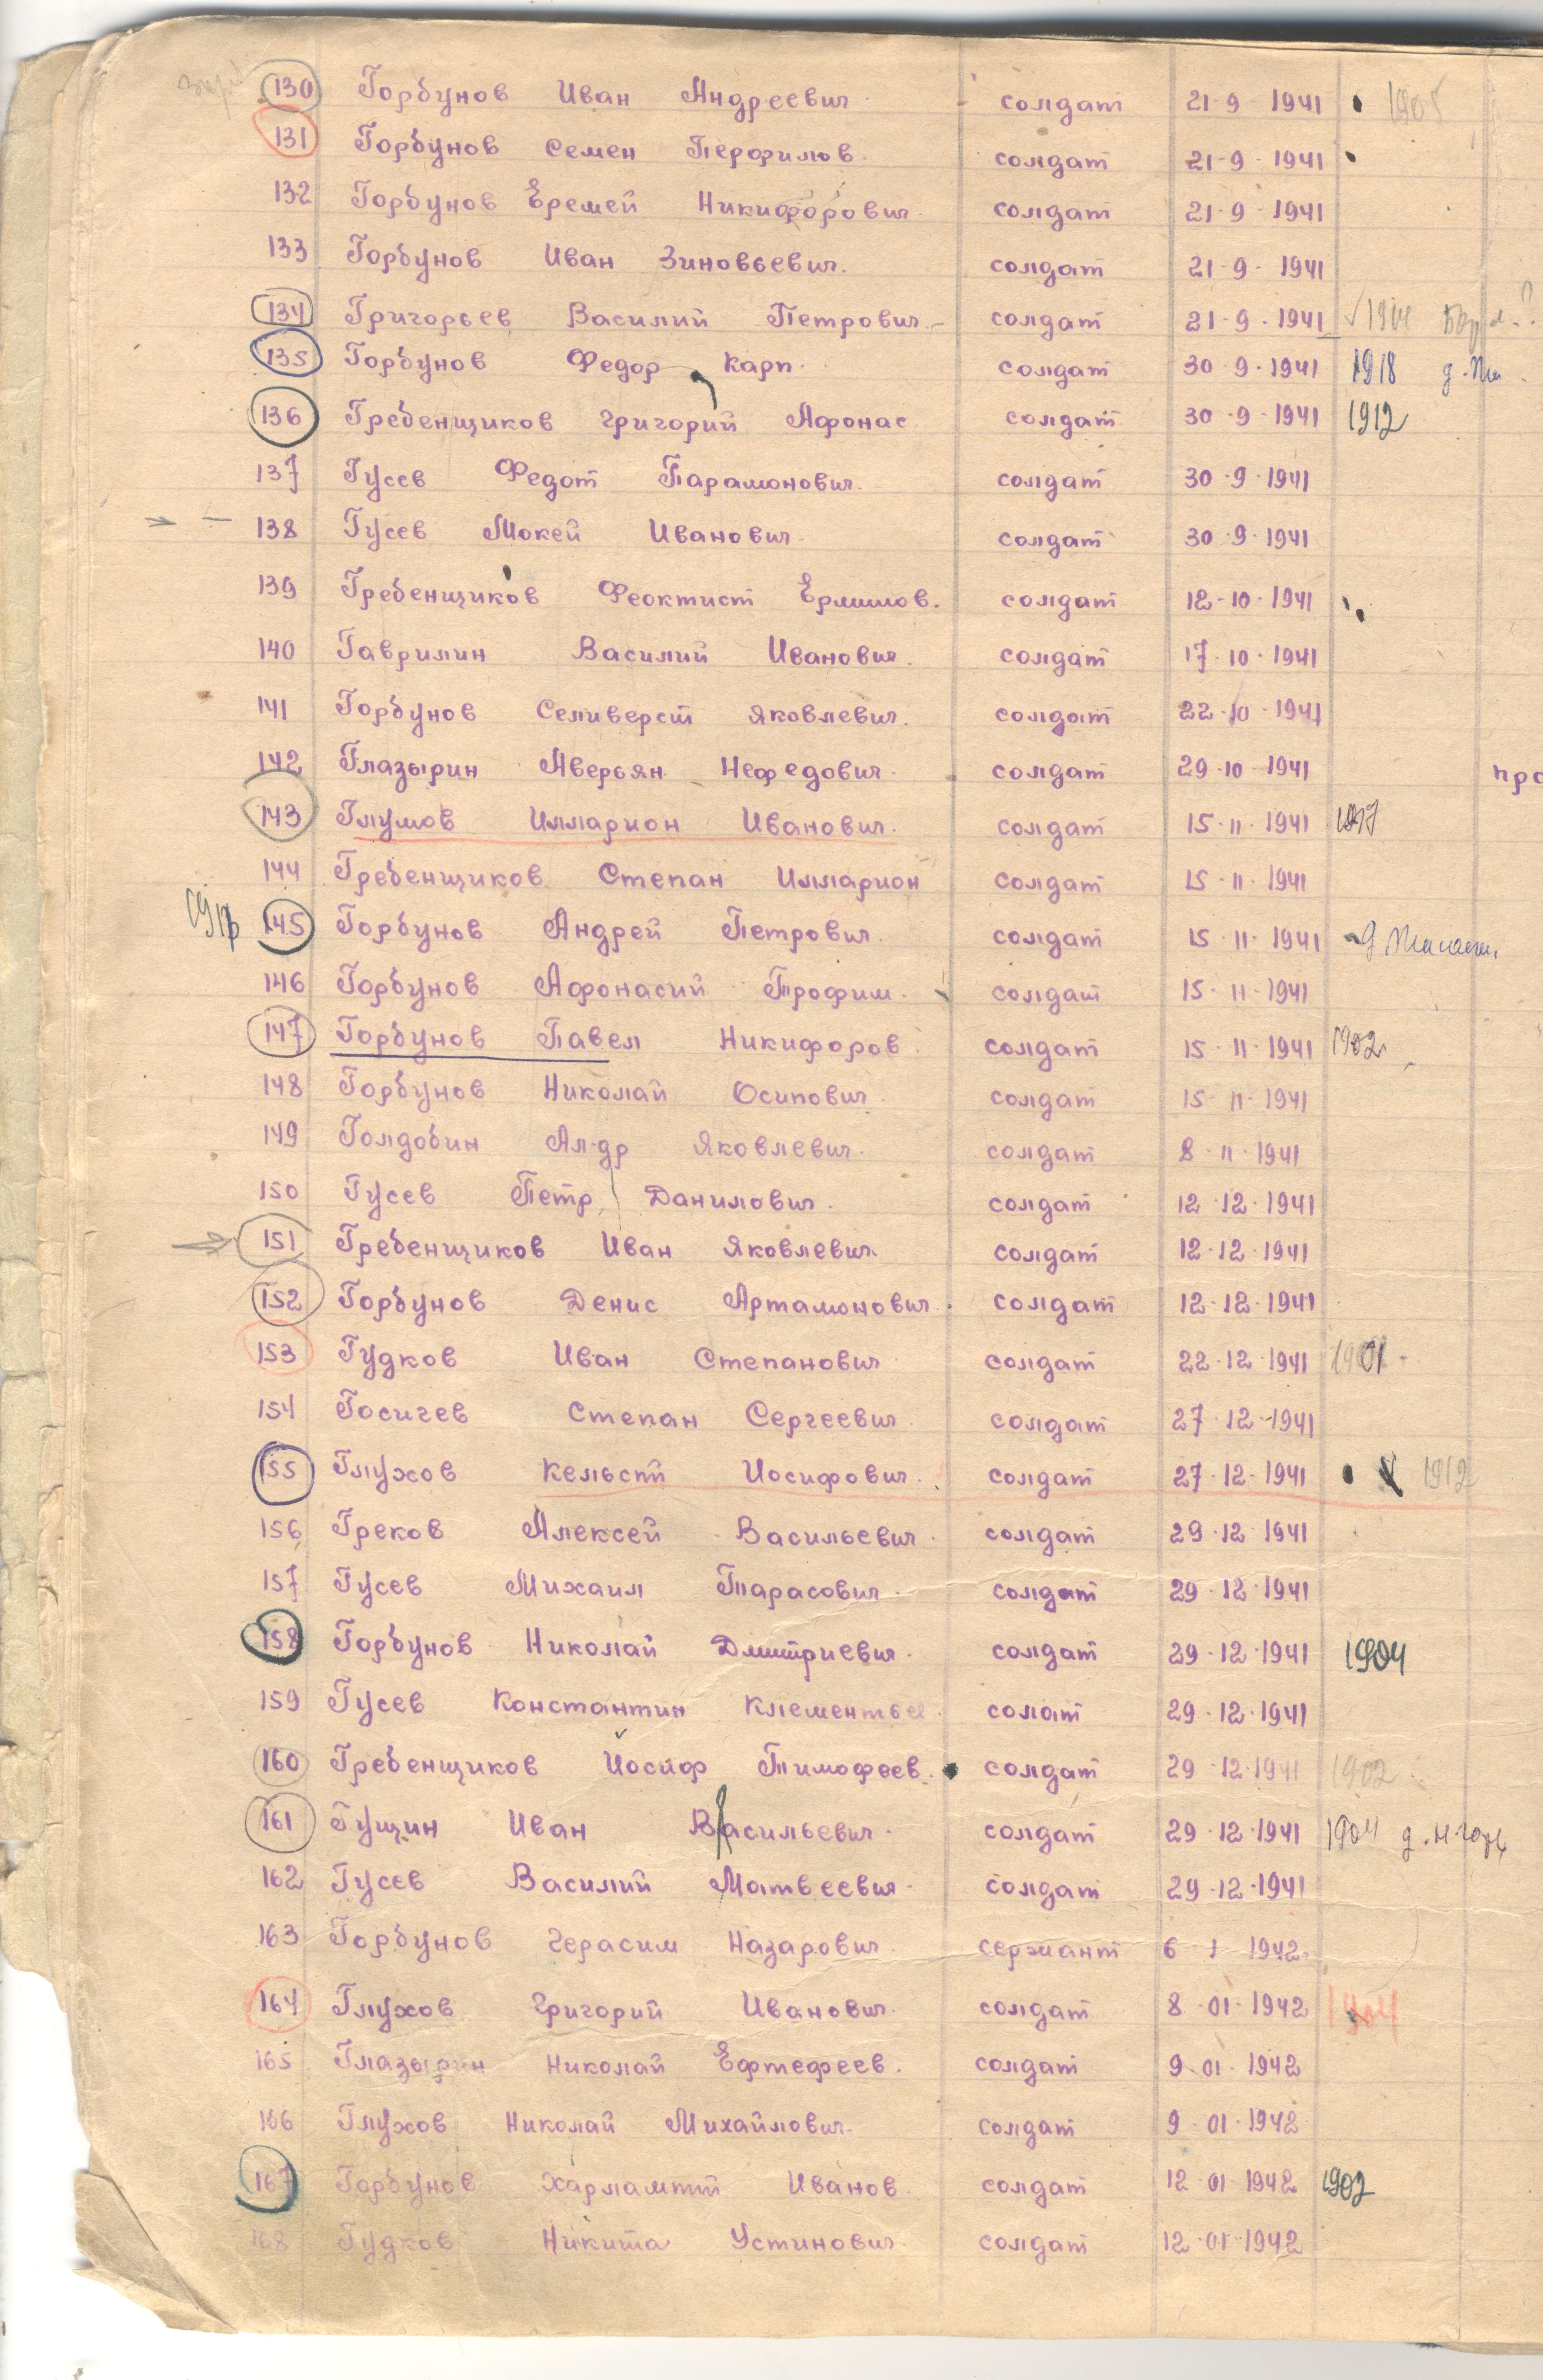 130 Горбунов Иван Андреевич солдат 21-9-1941 1905
131 Горбунов Семен Перфилов. солдат 21-9-1941
132 Горбунов Еремей Никифорович солдат 21-9-1941
133 Горбунов Иван Зиновьевич. солдат 21-9-1941
134 Григорьев Василий Петрович солдат 21-9-1941
135 Горбунов Федор Карп. солдат 30-9-1941 1918
136 Гребенщиков Григорий Афонас солдат 30-9-1941 1912
137 Гусев Федот Парамонович. солдат 30-9-1941
138 Гусев Мокей Иванович. солдат 30-9-1941
139 Гребенщиков Феоктист Ермилов. солдат 12-10-1941
140 Гаврилин Василий Иванович. солдат 17-10-1941
141 Горбунов Селиверст Яковлевич. солдат 22-10-1941
142 Глазырин Аверьян Нефедович. солдат 29-10-1941
143 Глумов Илларион Иванович. солдат 15-11-1941
144 Гребенщиков Степан Илларион солдат 15-11-1941
145 Горбунов Андрей Петрович. солдат 15-11-1941
146 Горбунов Афонасий Трофим. солдат 15-11-1941
147 Горбунов Павел Никифоров. солдат 15-11-1941 1902
148 Горбунов Николай Осипович. солдат 15-11-1941
149 Голдобин Ал-др Яковлевич. солдат 8-11-1941
150 Гусев Петр Данилович. солдат 12-12-1941
151 Гребенщиков Иван Яковлевич. солдат 12-12-1941
152 Горбунов Денис Артамонович. солдат 12-12-1941
153 Гудков Иван Степанович солдат 22-12-1941 1901
154 Госичев Степан Сергеевич. солдат 27-12-1941
155 Глухов Кельстй Иосифович. солдат 27-12-1941 1912
156 Греков Алексей Васильевич. солдат 29-12-1941
157 Гусев Михаил Тарасович. солдат 29-12-1941
158 Горбунов Николай Дмитриевич. солдат 29-12-1941 1904
159 Гусев Константин Клементьев солат 29-12-1941
160 Гребенщиков Иосиф Тимофеев. солдат 29-12-1941 1902
161 Гущин Иван Васильевич. солдат 29-12-1941 1904
162 Гусев Василий Матвеевич. солдат 29-12-1941
163 Горбунов Герасим Назарович. сержант 6-1-1942
164 Глухов Григорий Иванович. солдат 8-01-1942 1904
165 Глазырин Николай Ефтефеев. солдат 9-01-1942
166 Глухов Николай Михайлович. солдат 9-01-1942
167 Горбунов Харлампий Иванов солдат 12-01-1942 1902
168 Гудков Никита Устинович. солдат 12-01-1942